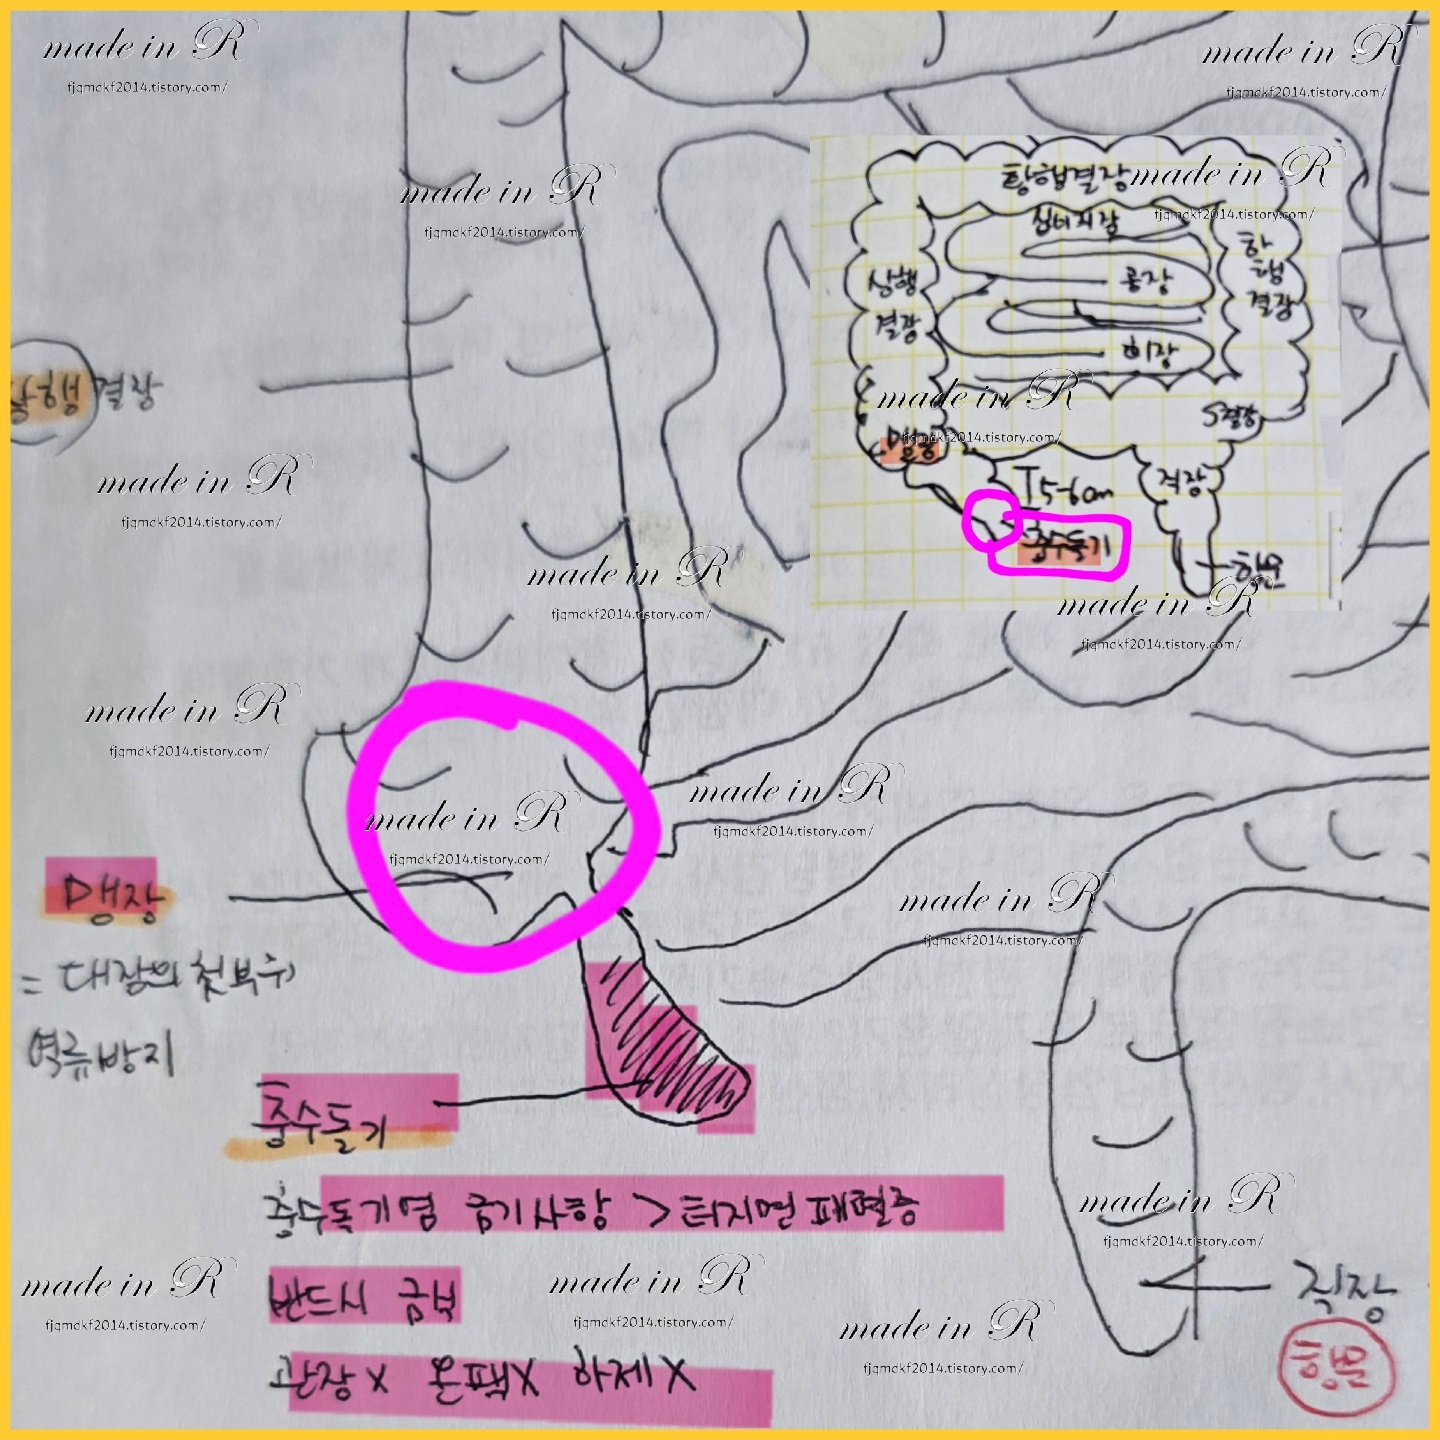 made in R
fjqmdkf2014.tistory.com/
made in R
fjqmdkf2014.tistory.com/
made in R
fjqmdkf2014.tistory.com/
횡행결장
made in R
fjqmdkf2014.tistory.com/
십이지장
공장
회장
상행
결장
하
행
결장
S결장
made in R
fjqmdkf2014.tistory.com/
맹장
5-6cm
직장
충수돌기
항문
상행결장
made in R
fjqmdkf2014.tistory.com/
made in R
fjqmdkf2014.tistory.com/
made in R
fjqmdkf2014.tistory.com/
made in R
fjqmdkf2014.tistory.com/
made in R
fjqmdkf2014.tistory.com/
made in R
fjqmdkf2014.tistory.com/
맹장
= 대장의 첫부위
역류방지
made in R
fjqmdkf2014.tistory.com/
충수돌기
충수돌기염 금기사항 > 터지면 패혈증
반드시 금식
관장X 온팩X 하제X
made in R
fjqmdkf2014.tistory.com/
made in R
fjqmdkf2014.tistory.com/
made in R
fjqmdkf2014.tistory.com/
made in R
fjqmdkf2014.tistory.com/
직장
항문